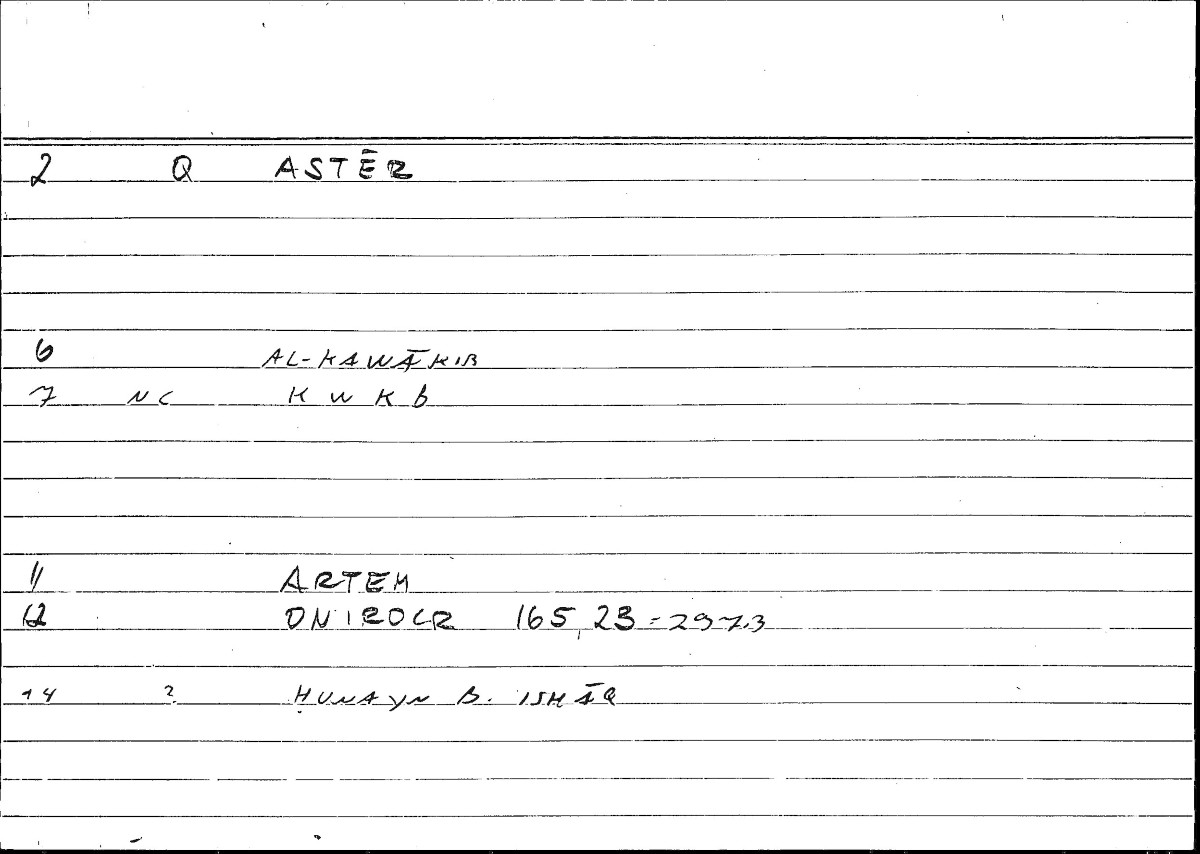 2 Q ASTĒR
6 AL-KAWĀKIB
7 NC KWKB
11 ARTEM
12 ONIROCR 165,23 = 297.3
14 ? ḤUNAYN B. ISḤĀQ